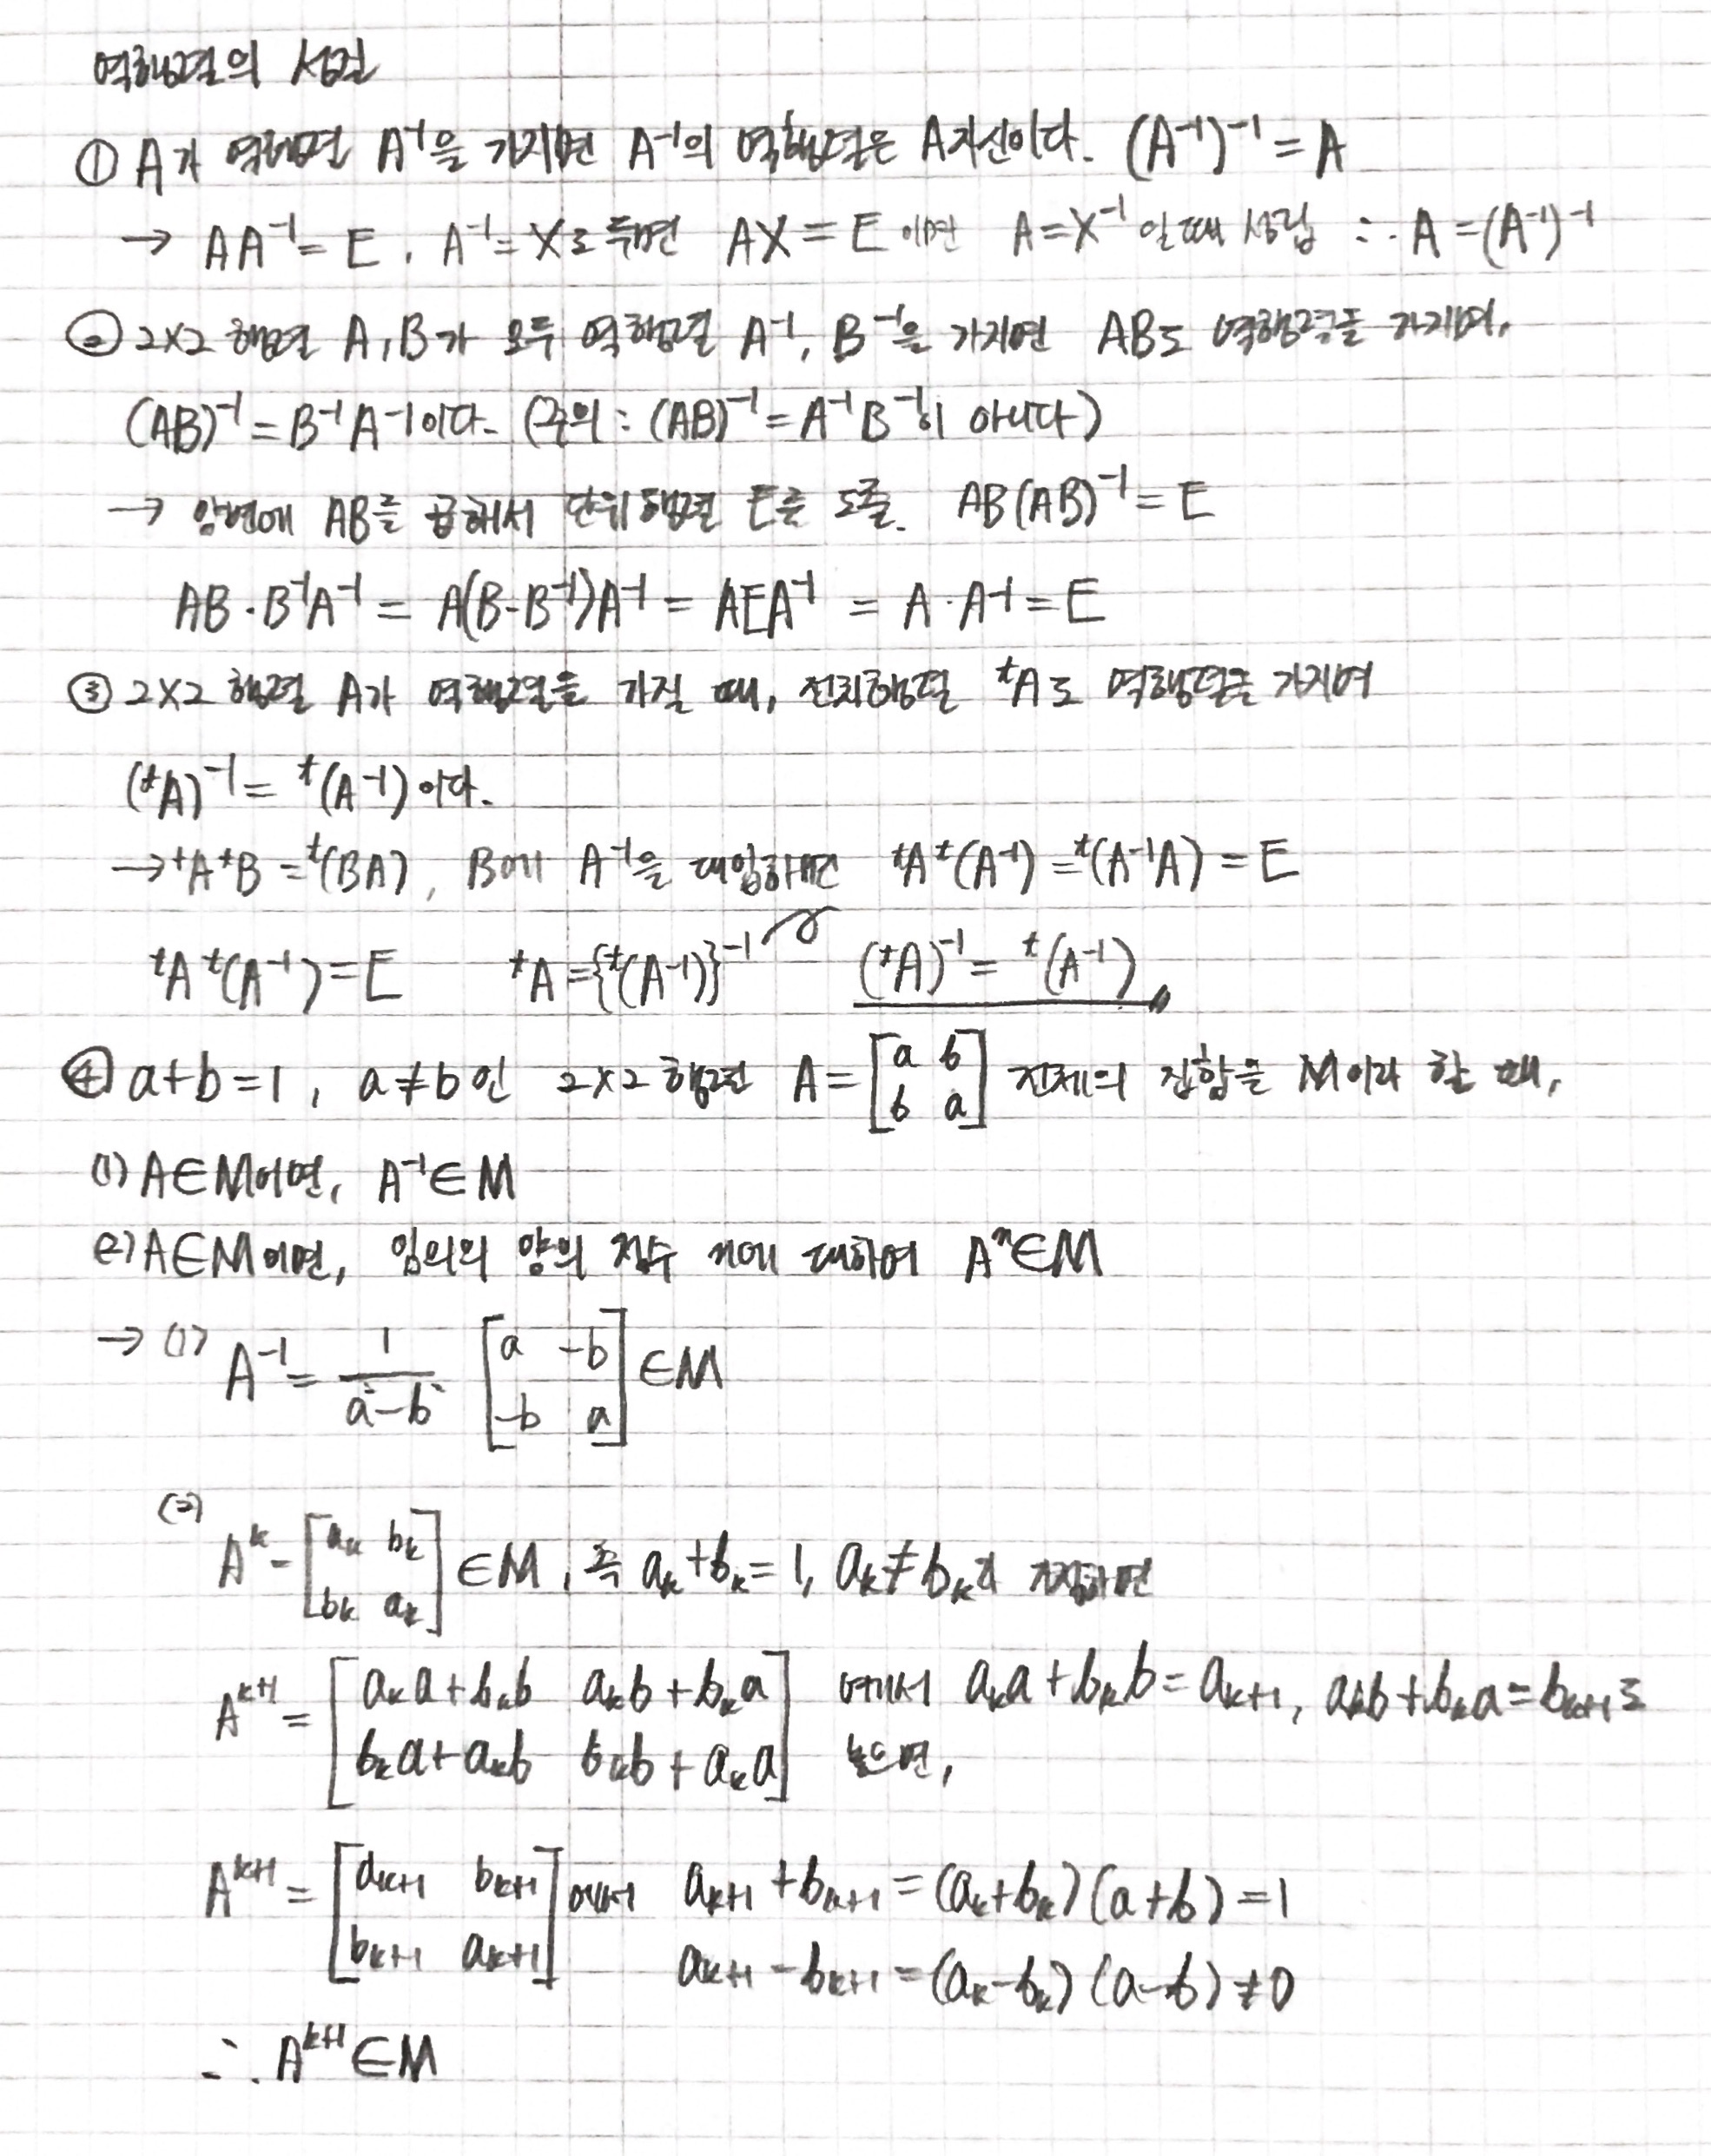 역행렬의 성질
① A가 역행렬 A⁻¹을 가지면 A⁻¹의 역행렬은 A자신이다. (A⁻¹)⁻¹ = A
→ AA⁻¹ = E, A⁻¹ = X로 두면 AX = E 이면 A = X⁻¹ 일 때 성립 ∴ A = (A⁻¹)⁻¹
② 2×2 행렬 A, B가 모두 역행렬 A⁻¹, B⁻¹을 가지면 AB도 역행렬을 가지며,
(AB)⁻¹ = B⁻¹A⁻¹이다. (주의 : (AB)⁻¹ = A⁻¹B⁻¹이 아니다)
→ 양변에 AB를 곱해서 단위행렬 E를 도출. AB(AB)⁻¹ = E
AB·B⁻¹A⁻¹ = A(B·B⁻¹)A⁻¹ = AEA⁻¹ = A·A⁻¹ = E
③ 2×2 행렬 A가 역행렬을 가질 때, 전치행렬 ᵗA도 역행렬을 가지며
(ᵗA)⁻¹ = ᵗ(A⁻¹)이다.
→ ᵗAᵗB = ᵗ(BA), B에 A⁻¹을 대입하면 ᵗAᵗ(A⁻¹) = ᵗ(A⁻¹A) = E
ᵗAᵗ(A⁻¹) = E ᵗA = {ᵗ(A⁻¹)}⁻¹ (ᵗA)⁻¹ = ᵗ(A⁻¹)〃
④ a+b=1, a≠b인 2×2 행렬 A = [a b; b a] 전체의 집합을 M이라 할 때,
(1) A∈M이면, A⁻¹∈M
(2) A∈M이면, 임의의 양의 정수 n에 대하여 Aⁿ∈M
→ (1) A⁻¹ = 1/(a²-b²) [a -b; -b a] ∈M
(2)
Aᵏ = [aₖ bₖ; bₖ aₖ] ∈M, 즉 aₖ+bₖ=1, aₖ≠bₖ라 가정하면
Aᵏ⁺¹ = [aₖa+bₖb aₖb+bₖa; bₖa+aₖb bₖb+aₖa] 에서 aₖa+bₖb=aₖ₊₁, aₖb+bₖa=bₖ₊₁로
놓으면,
Aᵏ⁺¹ = [aₖ₊₁ bₖ₊₁; bₖ₊₁ aₖ₊₁] 에서 aₖ₊₁+bₖ₊₁=(aₖ+bₖ)(a+b)=1
aₖ₊₁-bₖ₊₁=(aₖ-bₖ)(a-b)≠0
∴ Aᵏ⁺¹∈M